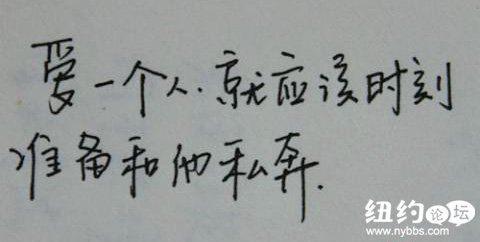 爱一个人.就应该时刻
准备和他私奔.
纽约论坛
www.nybbs.com